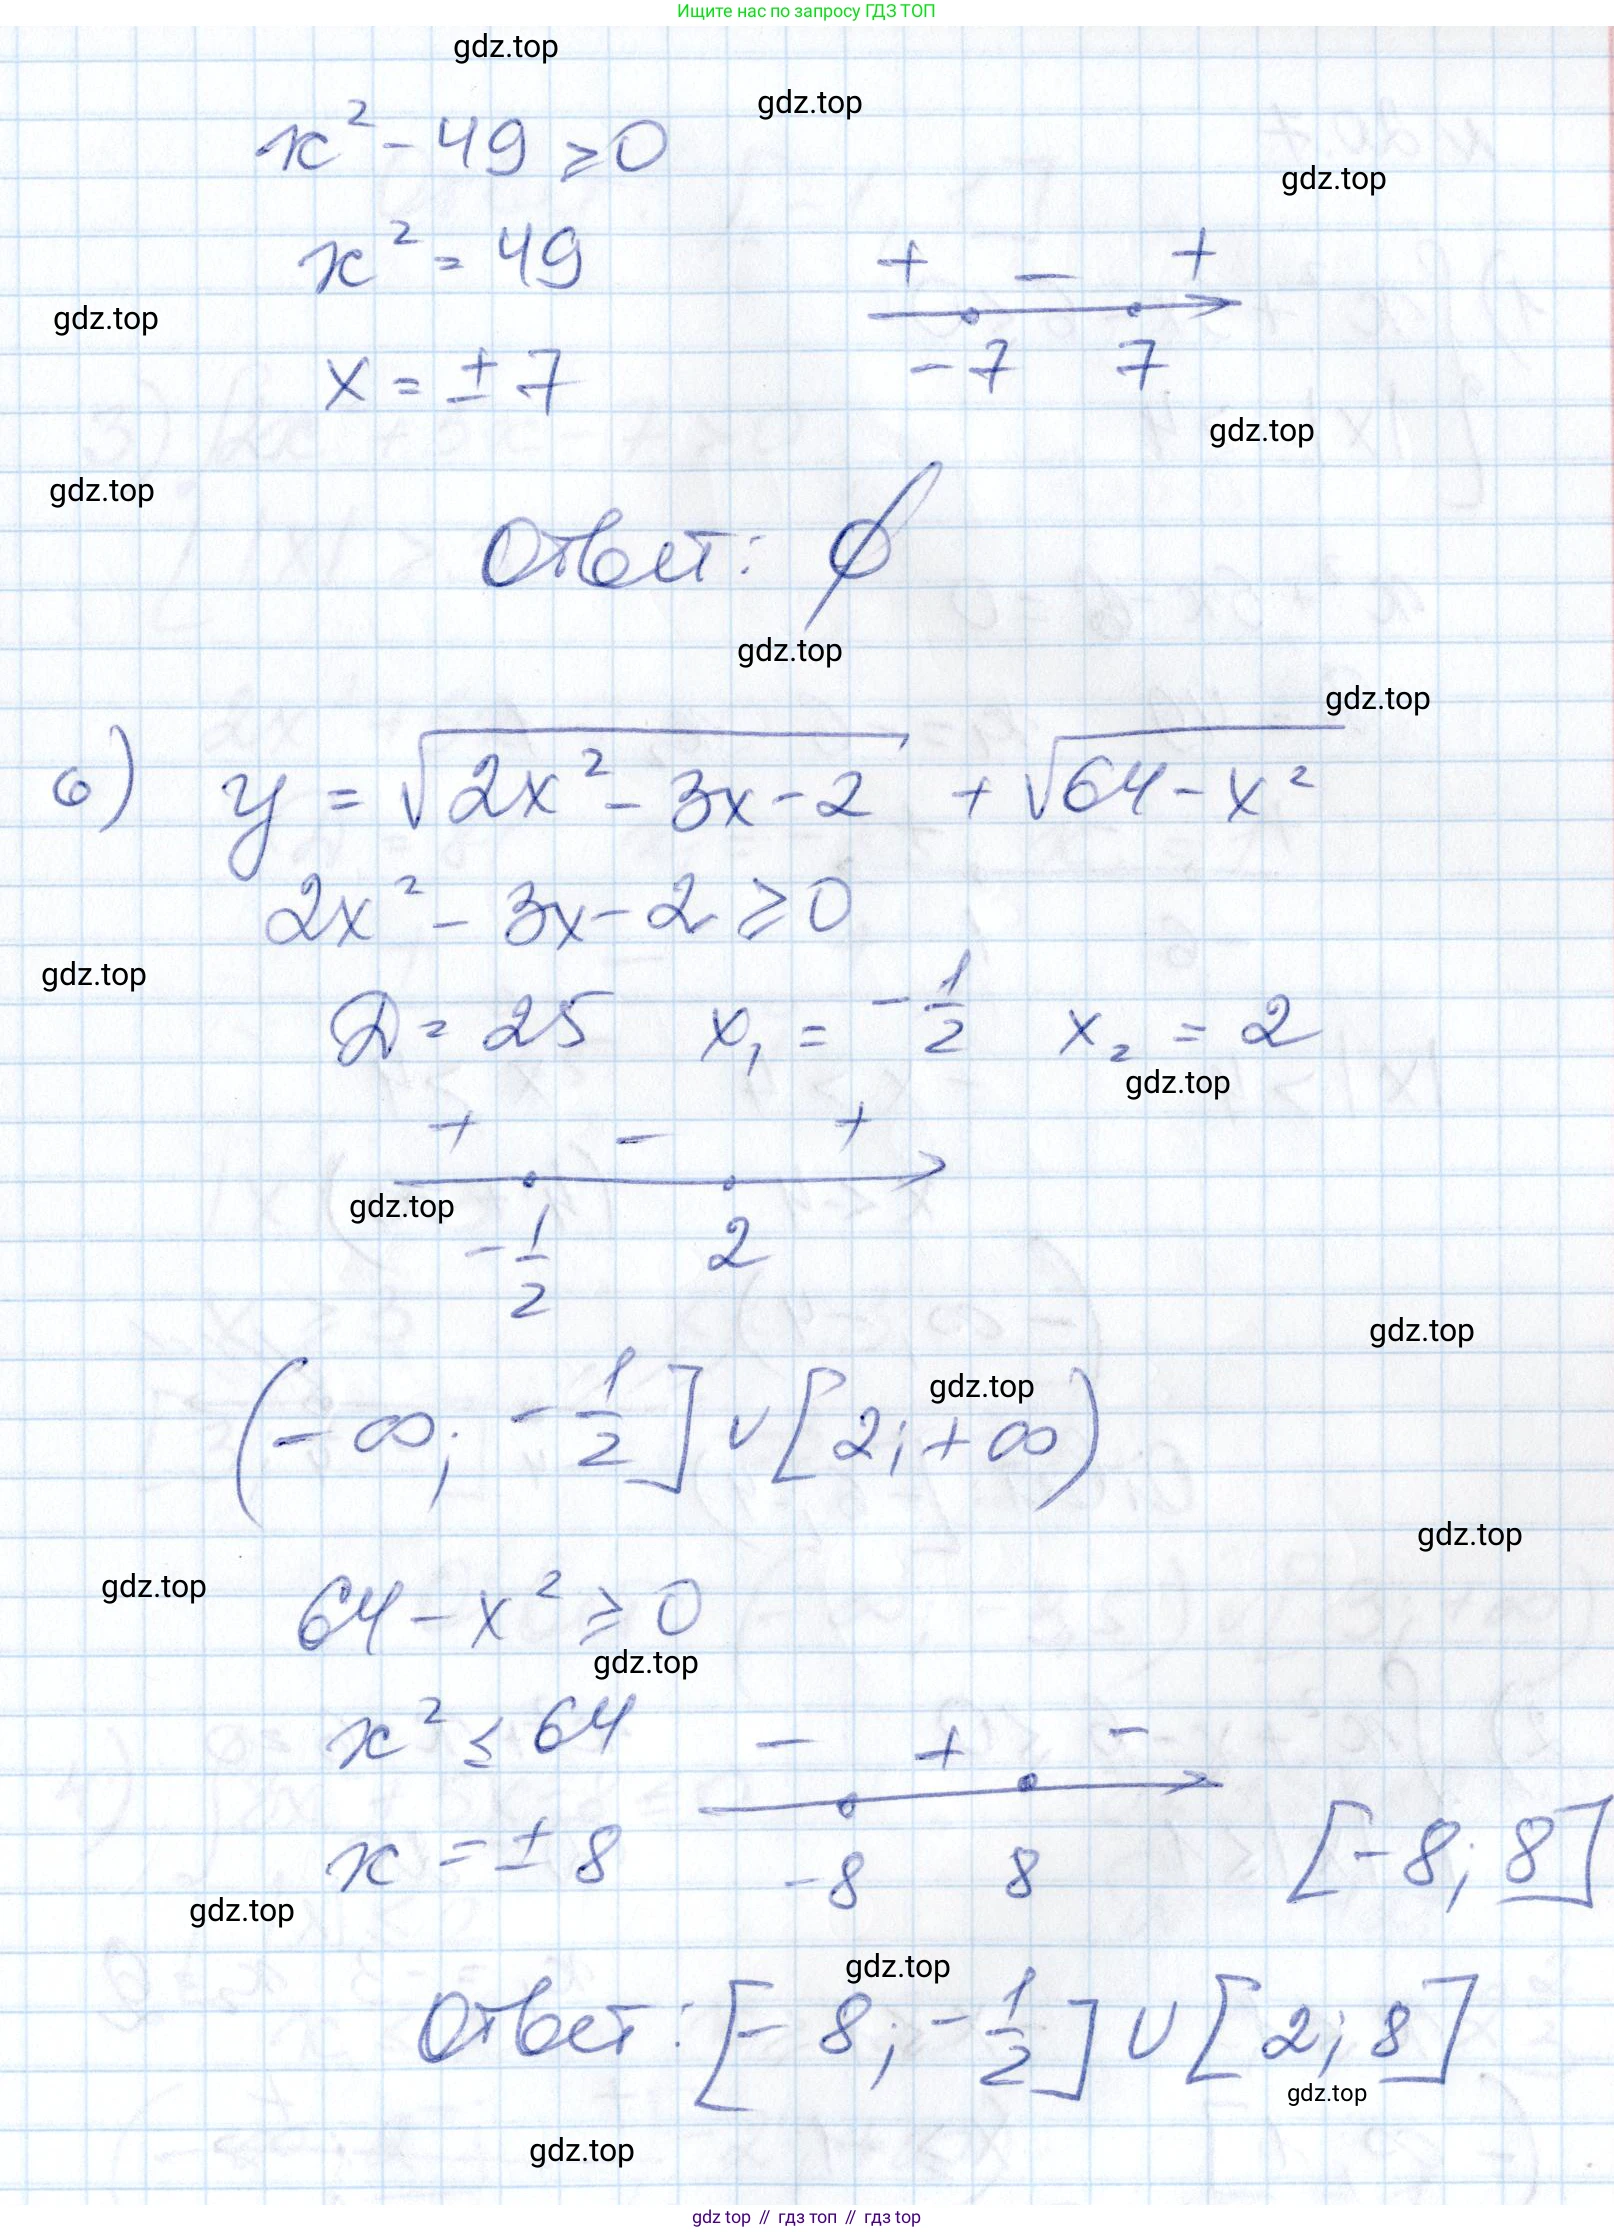 Ищите нас по запросу ГДЗ ТОП
gdz.top
gdz.top
x² - 49 ≥ 0
gdz.top
x² = 49
+ − +
gdz.top
-7 7
x = ±7
gdz.top
gdz.top
Ответ: ∅
gdz.top
gdz.top
6) y = √(2x² - 3x - 2) + √(64 - x²)
2x² - 3x - 2 ≥ 0
gdz.top
D = 25 x₁ = -1/2 x₂ = 2
gdz.top
+ − +
gdz.top
-1/2 2
gdz.top
gdz.top
(-∞; -1/2] ∪ [2; +∞)
gdz.top
gdz.top
64 - x² ≥ 0
gdz.top
x² ≤ 64
− + −
x = ±8
-8 8
[-8; 8]
gdz.top
gdz.top
Ответ: [-8; -1/2] ∪ [2; 8]
gdz.top
gdz.top
gdz top // гдз топ // гдз top